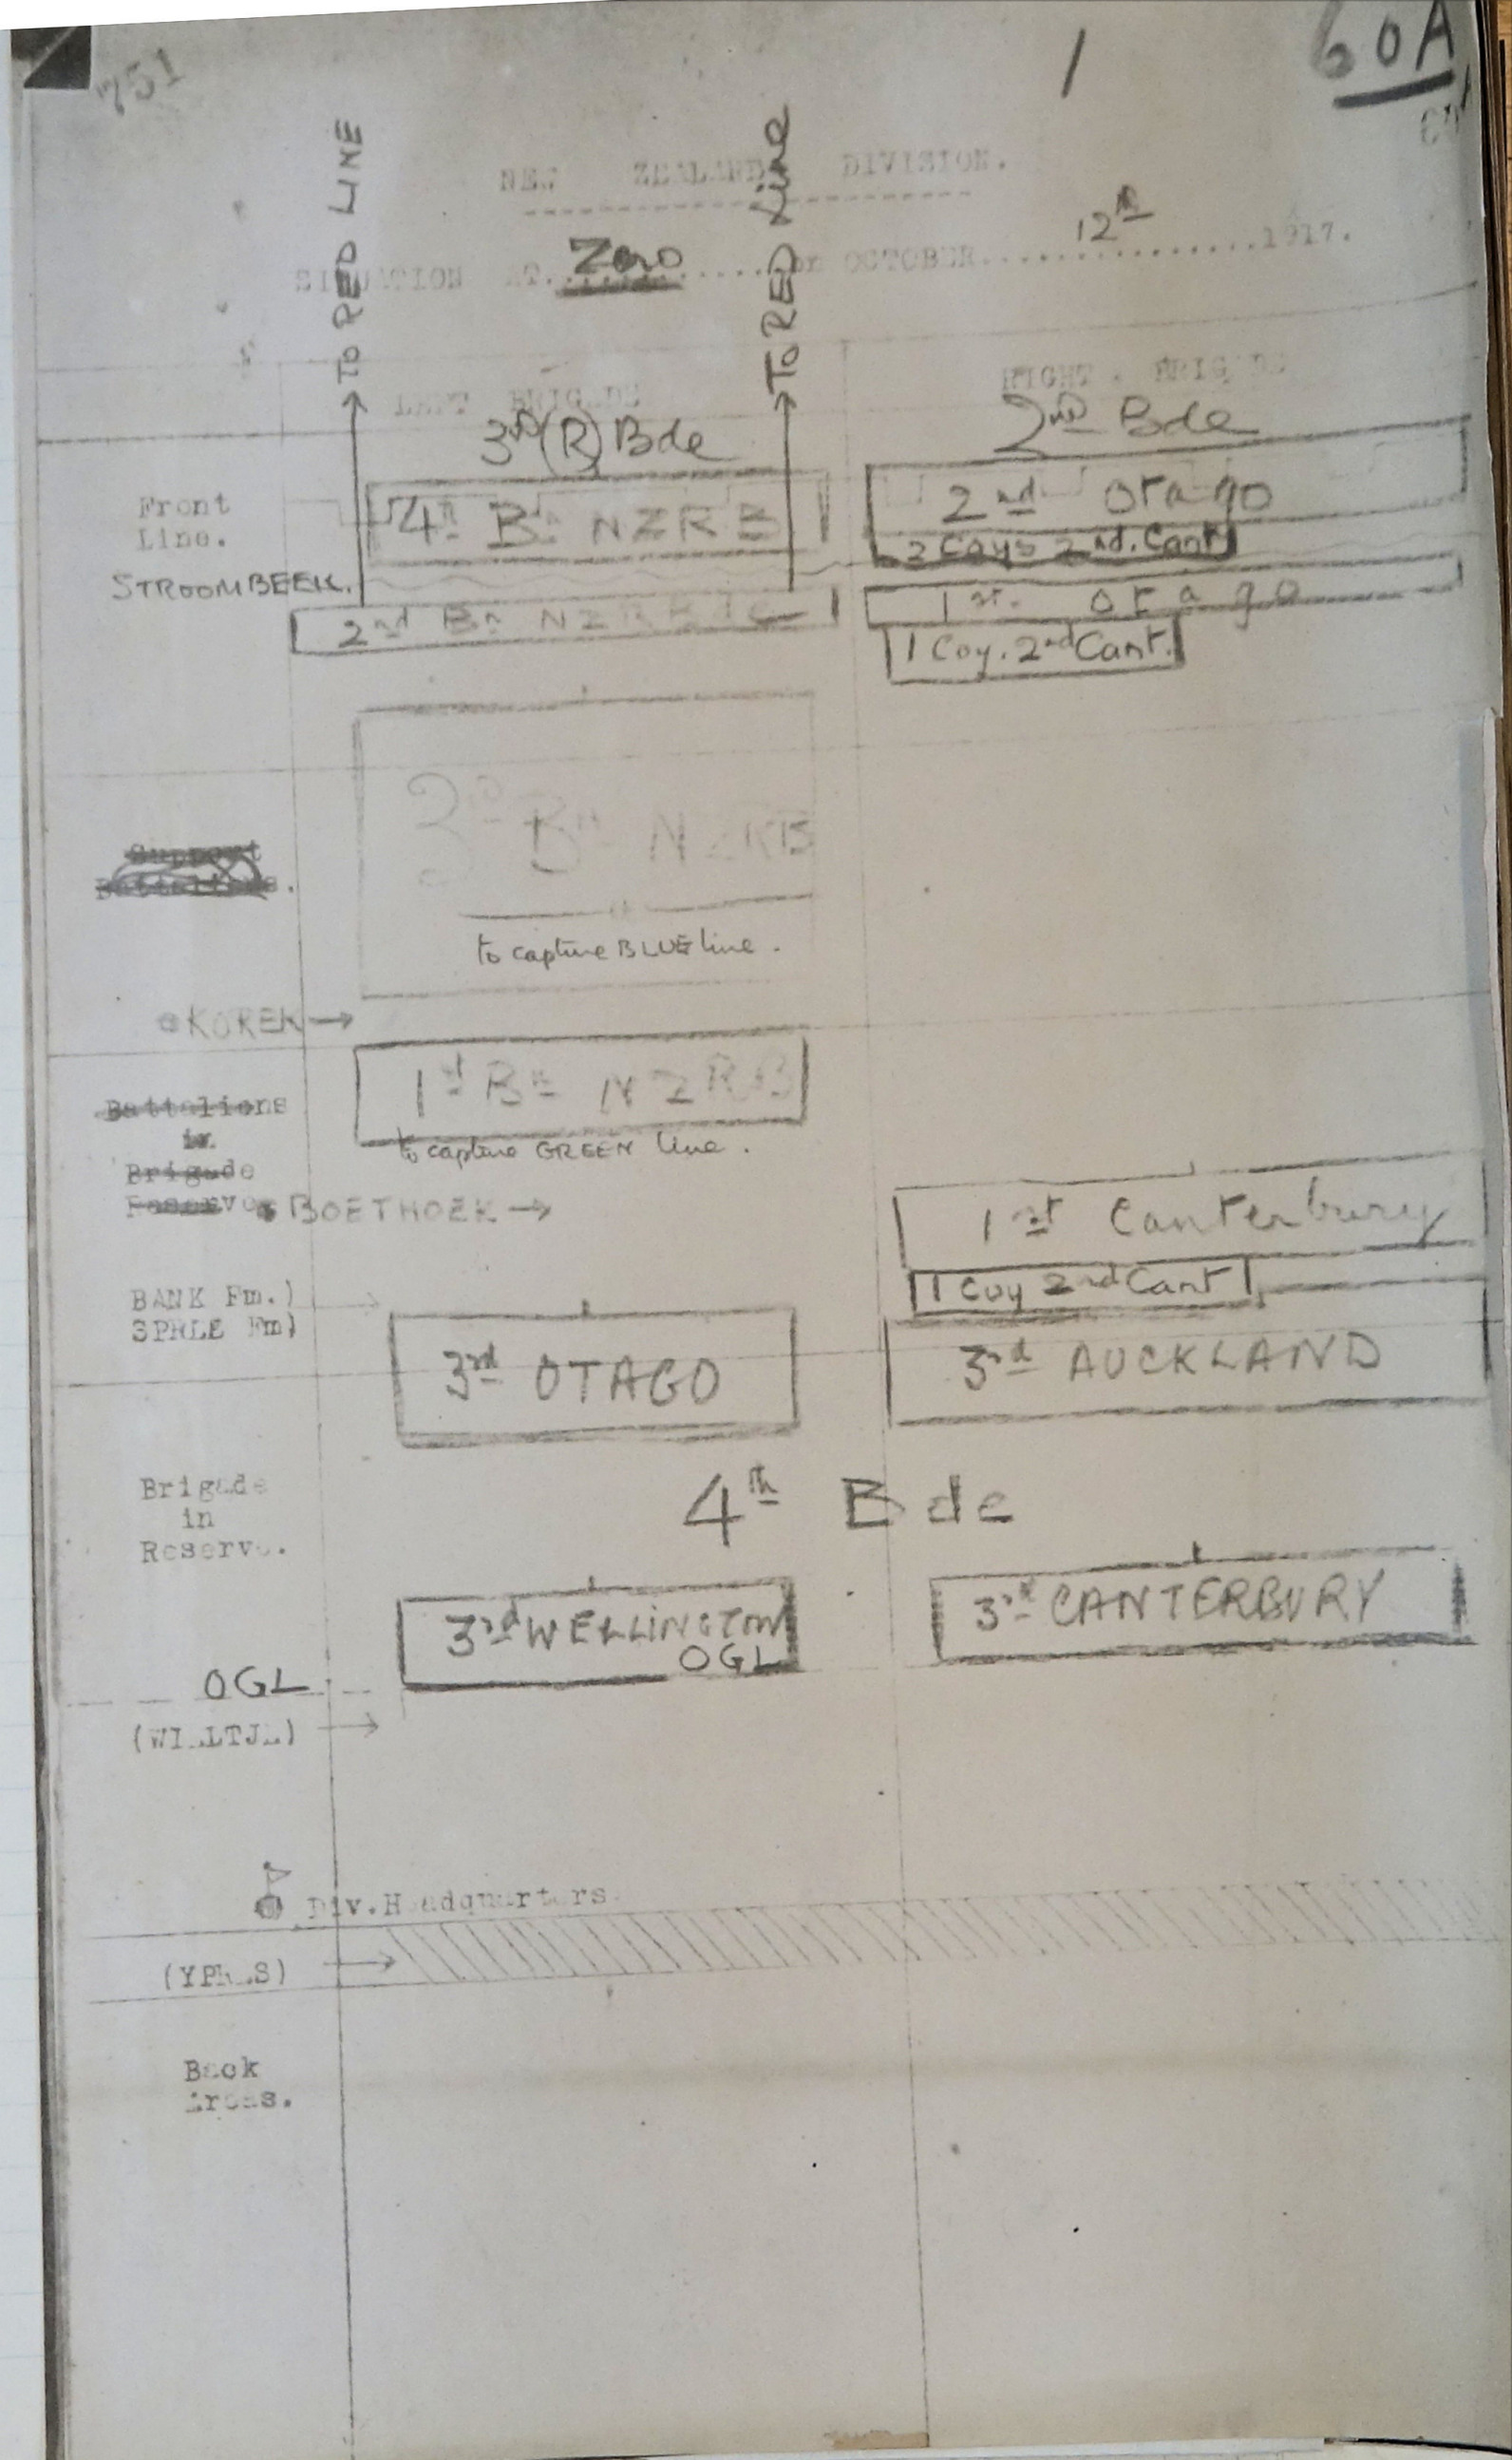 751
1
60A
NEW ZEALAND DIVISION.
SITUATION AT. Zero on OCTOBER 12th 1917.
TO RED LINE
TO RED Line
LEFT BRIGADE
RIGHT. BRIGADE
3rd (R) Bde
2nd Bde
Front
Line.
4th Bn NZRB
2nd Otago
2 Coys 2nd. Cant
STROOMBEEK.
2nd Bn NZRB
1st. Otago
1 Coy. 2nd Cant.
Support
Battalions.
3rd Bn NZRB
to capture BLUE line.
KOREK →
1st Bn NZRB
to capture GREEN line.
Battalions
in
Brigade
Reserve
BOETHOEK →
1st Canterbury
1 Coy 2nd Cant
BANK Fm.)
SPREE Fm)
3rd OTAGO
3rd AUCKLAND
Brigade
in
Reserve.
4th Bde
3rd WELLINGTON
OGL
3rd CANTERBURY
OGL
(WIELTJE) →
Div. Headquarters
(YPRES) →
Back
Areas.